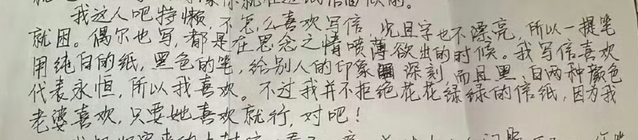 我这人吧特懒,不怎么喜欢写信,况且字也不漂亮,所以一提笔
就困。偶尔也写,都是在思念之情喷薄欲出的时候。我写信喜欢
用纯白的纸,黑色的笔,给别人的印象深刻,而且黑、白两种颜色
代表永恒,所以我喜欢。不过我并不拒绝花花绿绿的信纸,因为我
老婆喜欢,只要她喜欢就行,对吧!